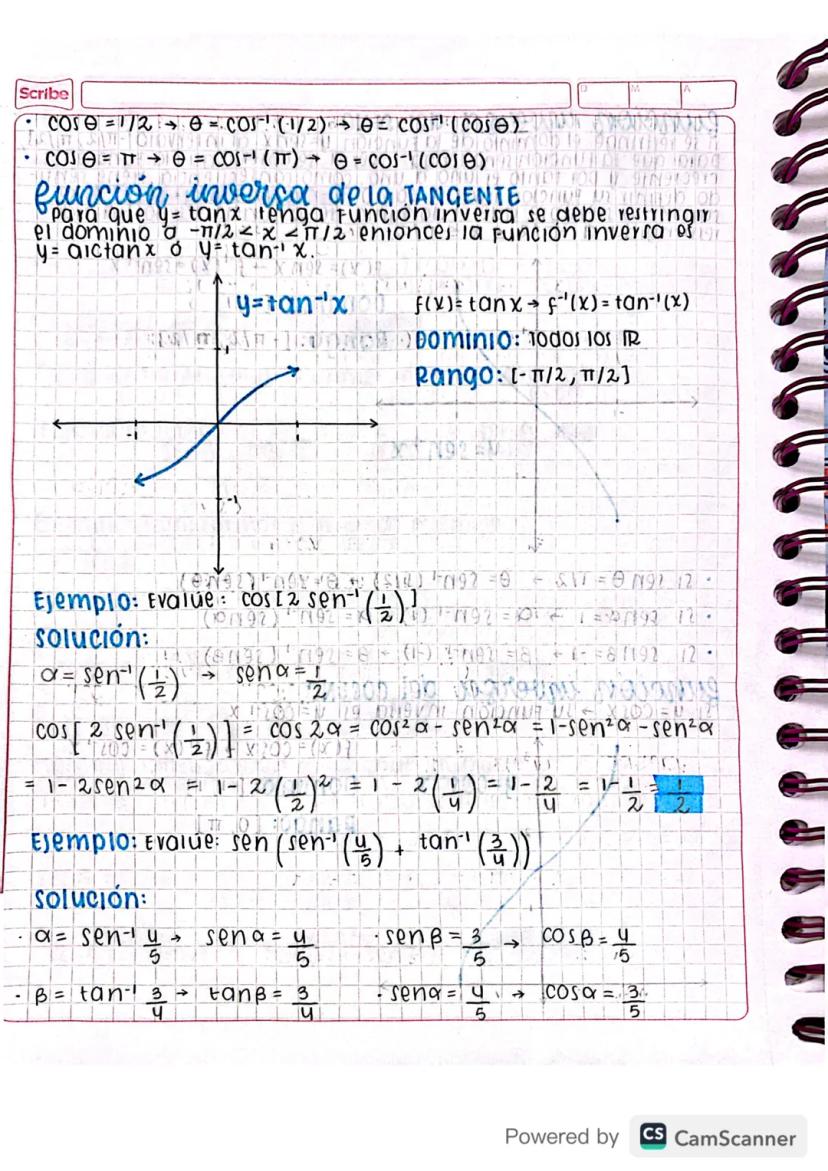 Scribe
D M A
• cos θ = 1/2 → θ = cos⁻¹ (1/2) → θ = cos⁻¹ (cos θ)
• cos θ = π → θ = cos⁻¹ (π) → θ = cos⁻¹ (cos θ)
Función inversa de la TANGENTE
Para que y = tan x tenga función inversa se debe restringir
el dominio a -π/2 < x < π/2 entonces la función inversa es
y = arctan x ó y = tan⁻¹ x.
y = tan⁻¹ x
f(x) = tan x → f⁻¹(x) = tan⁻¹(x)
1
Dominio: Todos los ℝ
Rango: [-π/2, π/2]
-1 1
-1
Ejemplo: Evalúe: cos [2 sen⁻¹ (1/2)]
Solución:
α = sen⁻¹ (1/2) → sen α = 1/2
cos [2 sen⁻¹ (1/2)] = cos 2α = cos² α - sen² α = 1 - sen² α - sen² α
= 1 - 2 sen² α = 1 - 2 (1/2)² = 1 - 2 (1/4) = 1 - 2/4 = 1 - 1/2 = 1/2
Ejemplo: Evalúe: sen (sen⁻¹ (4/5) + tan⁻¹ (3/4))
Solución:
· α = sen⁻¹ 4/5 → sen α = 4/5 · sen β = 3/5 → cos β = 4/5
· β = tan⁻¹ 3/4 → tan β = 3/4 · sen α = 4/5 → cos α = 3/5
Powered by CS CamScanner